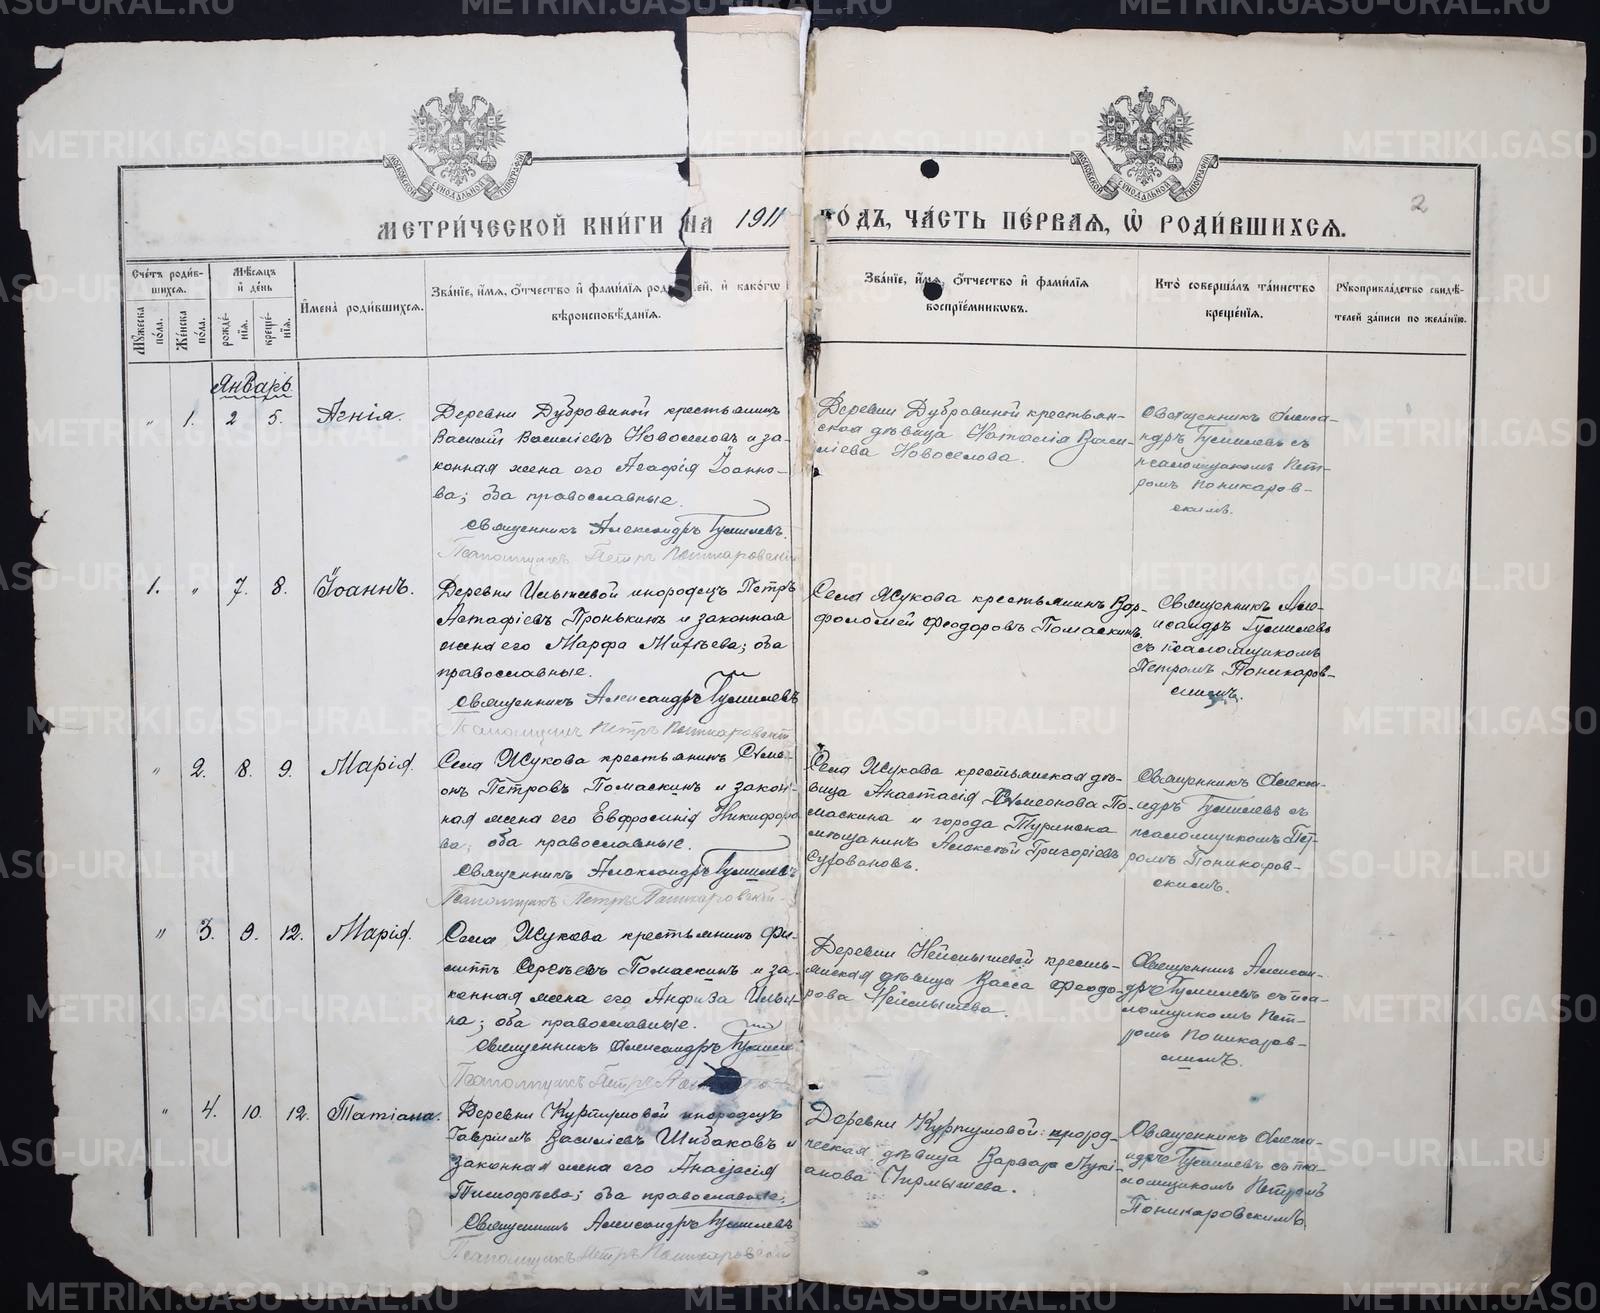 МЕТРИ́ЧЕСКОЙ КНИ́ГИ НА 1911 ГО́ДЪ, ЧА́СТЬ ПЕ́РВАЯ, Ѡ҆ РОДИ́ВШИХСЯ.
2
Сче́тъ роди́в-
шихся.
Мѣ́сяцъ
и҆ де́нь
Мꙋ́жеска
по́ла.
Же́нска
по́ла.
рожде́-
нїя.
креще́-
нїя.
И҆мена̀ роди́вшихся.
Зва́нїе, и҆́мя, ѻ҆́тчество и҆ фами́лїя род ей, и҆ како́гѡ
вѣроисповѣ́данїя.
Зва́нїе, и҆́мя, ѻ҆́тчество и҆ фами́лїя
воспрїе́мникѡвъ.
Кто̀ соверша́лъ та́инство
креще́нїя.
Рꙋкоприкла́дство свидѣ́-
телей за́писи по жела́нїю.
Январь
" 1. 2 5. Агнія.
Деревни Дубровиной крестьянинъ
Василій Василіевъ Новоселовъ и за-
конная жена его Агафія Іоанно-
ва; оба православные.
Священникъ Александръ Гумилевъ.
Псаломщикъ Петръ Поникаровскій
Деревни Дубровиной крестьян-
ская дѣвица Наталія Васи-
ліева Новоселова.
Священникъ Алекса-
ндръ Гумилевъ съ
псаломщикомъ Пет-
ромъ Поникаров-
скимъ.
1. " 7. 8. Іоаннъ.
Деревни инородецъ Петръ
Астафіевъ Пронькинъ и законная
жена его Марфа Матѳѣева; оба
православные.
Священникъ Александръ Гумилевъ
Псаломщикъ Петръ Поникаровскій
Села Жукова крестьянинъ Вар-
фоломей Феодоровъ Помаскинъ.
Священникъ Але-
ксандръ Гумилевъ
съ псаломщикомъ
Петромъ Поникаров-
скимъ.
" 2. 8. 9. Марія.
Села Жукова крестьянинъ Сѵме-
онъ Петровъ Помаскинъ и закон-
ная жена его Евфросинія Никифоро
ва; оба православные.
Священникъ Александръ Гумилевъ
Псаломщикъ Петръ Поникаровскій
Села Жукова крестьянская дѣ-
вица Анастасія Сѵмеонова По-
маскина и города Туринска
мѣщанинъ Алексѣй Григоріевъ
Священникъ Алекса-
ндръ Гумилевъ съ
псаломщикомъ Пет-
ромъ Поникаров-
скимъ.
" 3. 9. 12. Марія.
Села Жукова крестьянинъ Фи-
липпъ Сергѣевъ Помаскинъ и за-
конная жена его Анфиза Ильи-
на; оба православные.
Священникъ Александръ Гумилевъ
Псаломщикъ Петръ
Деревни Неймышевой кресть-
янская дѣвица Васса Феодо-
рова Неймышева.
Священникъ Алексан-
дръ Гумилевъ съ пса-
ломщикомъ Пет-
ромъ Поникаров-
скимъ.
" 4. 10. 12. Татіана.
Деревни Куртумовой инородецъ
Гавріилъ Василіевъ Шибаковъ и
законная жена его Анастасія
Тимофѣева; оба православные.
Священникъ Александръ Гумилевъ
Псаломщикъ Петръ Поникаровскій
Деревни Куртумовой инород-
ческая дѣвица Варвара Луки-
анова Чирмышева.
Священникъ Алекса-
ндръ Гумилевъ съ пса-
ломщикомъ Петромъ
Поникаровскимъ.